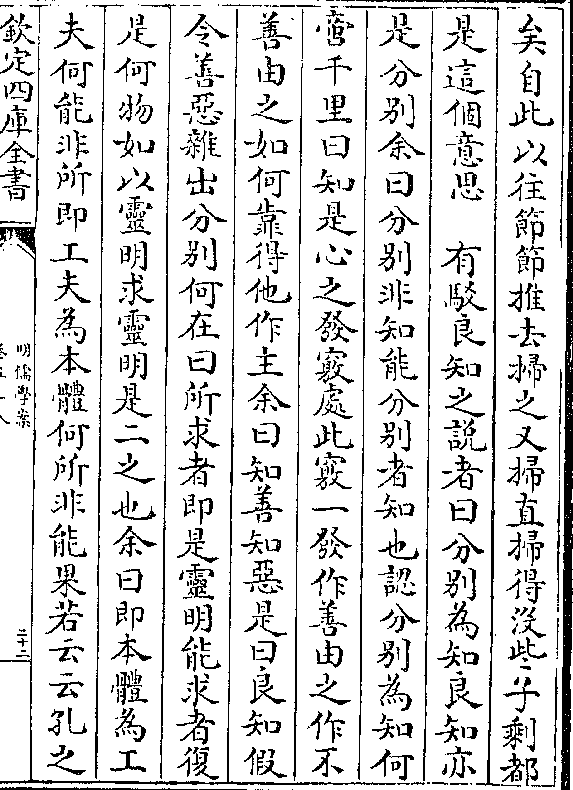 矣自此以往節節推去掃之又掃直掃得没些子剩都
是這個意思　有駁良知之說者曰分別為知良知亦
是分別余曰分別非知能分別者知也認分別為知何
啻千里曰知是心之發竅處此竅一發作善由之作不
善由之如何靠得他作主余曰知善知惡是曰良知假
令善惡雜出分別何在曰所求者即是靈明能求者復
是何物如以靈明求靈明是二之也余曰即本體為工
夫何能非所即工夫為本體何所非能果若云云孔之
欽定四庫全書
明儒學案
卷五十八
二十二